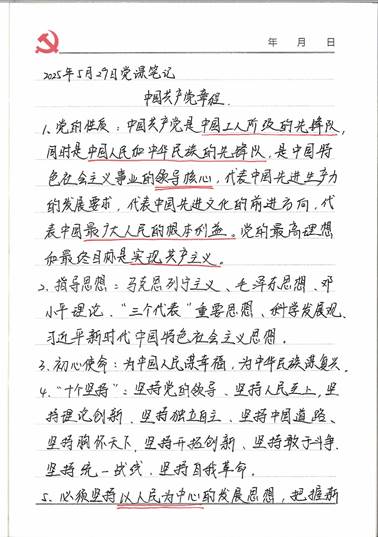 年 月 日
2025年5月29日党课笔记
中国共产党章程.
1、党的性质：中国共产党是中国工人阶级的先锋队，
同时是中国人民和中华民族的先锋队，是中国特
色社会主义事业的领导核心，代表中国先进生产力
的发展要求，代表中国先进文化的前进方向，代
表中国最广大人民的根本利益。党的最高理想
和最终目标是实现共产主义。
2、指导思想：马克思列宁主义、毛泽东思想、邓
小平理论、“三个代表”重要思想、科学发展观、
习近平新时代中国特色社会主义思想。
3、初心使命：为中国人民谋幸福，为中华民族谋复兴。
4、“十个坚持”：坚持党的领导、坚持人民至上、坚
持理论创新、坚持独立自主、坚持中国道路、
坚持胸怀天下、坚持开拓创新、坚持敢于斗争、
坚持统一战线、坚持自我革命。
5、必须坚持以人民为中心的发展思想，把握新